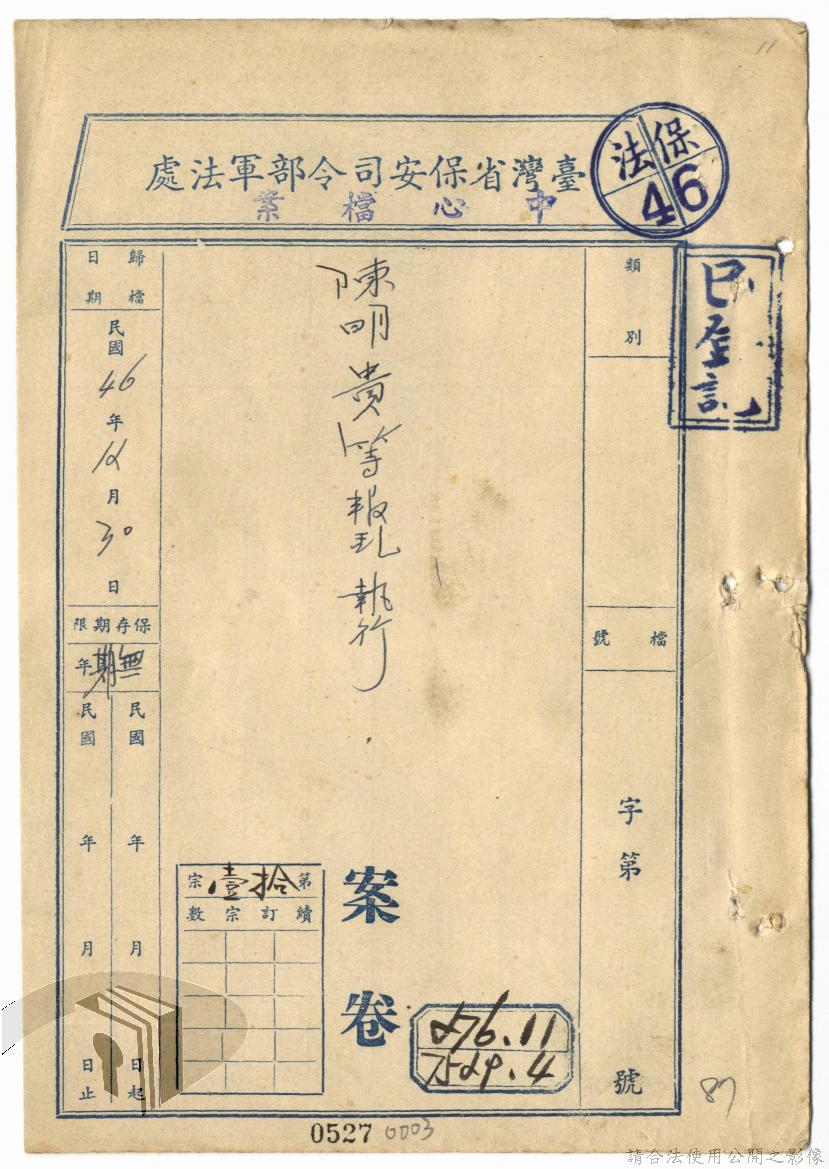 11
臺灣省保安司令部軍法處
中心檔案
保法
46
已登記
類別
檔號
字第號
陳明貴等報乱執行
案卷
歸檔日期
民國46年12月30日
保存期限
無期年
民國年月日起
民國年月日止
第拾壹宗
續訂宗數
276.11
7529.4
0527
0003
87
請合法使用公開之影像